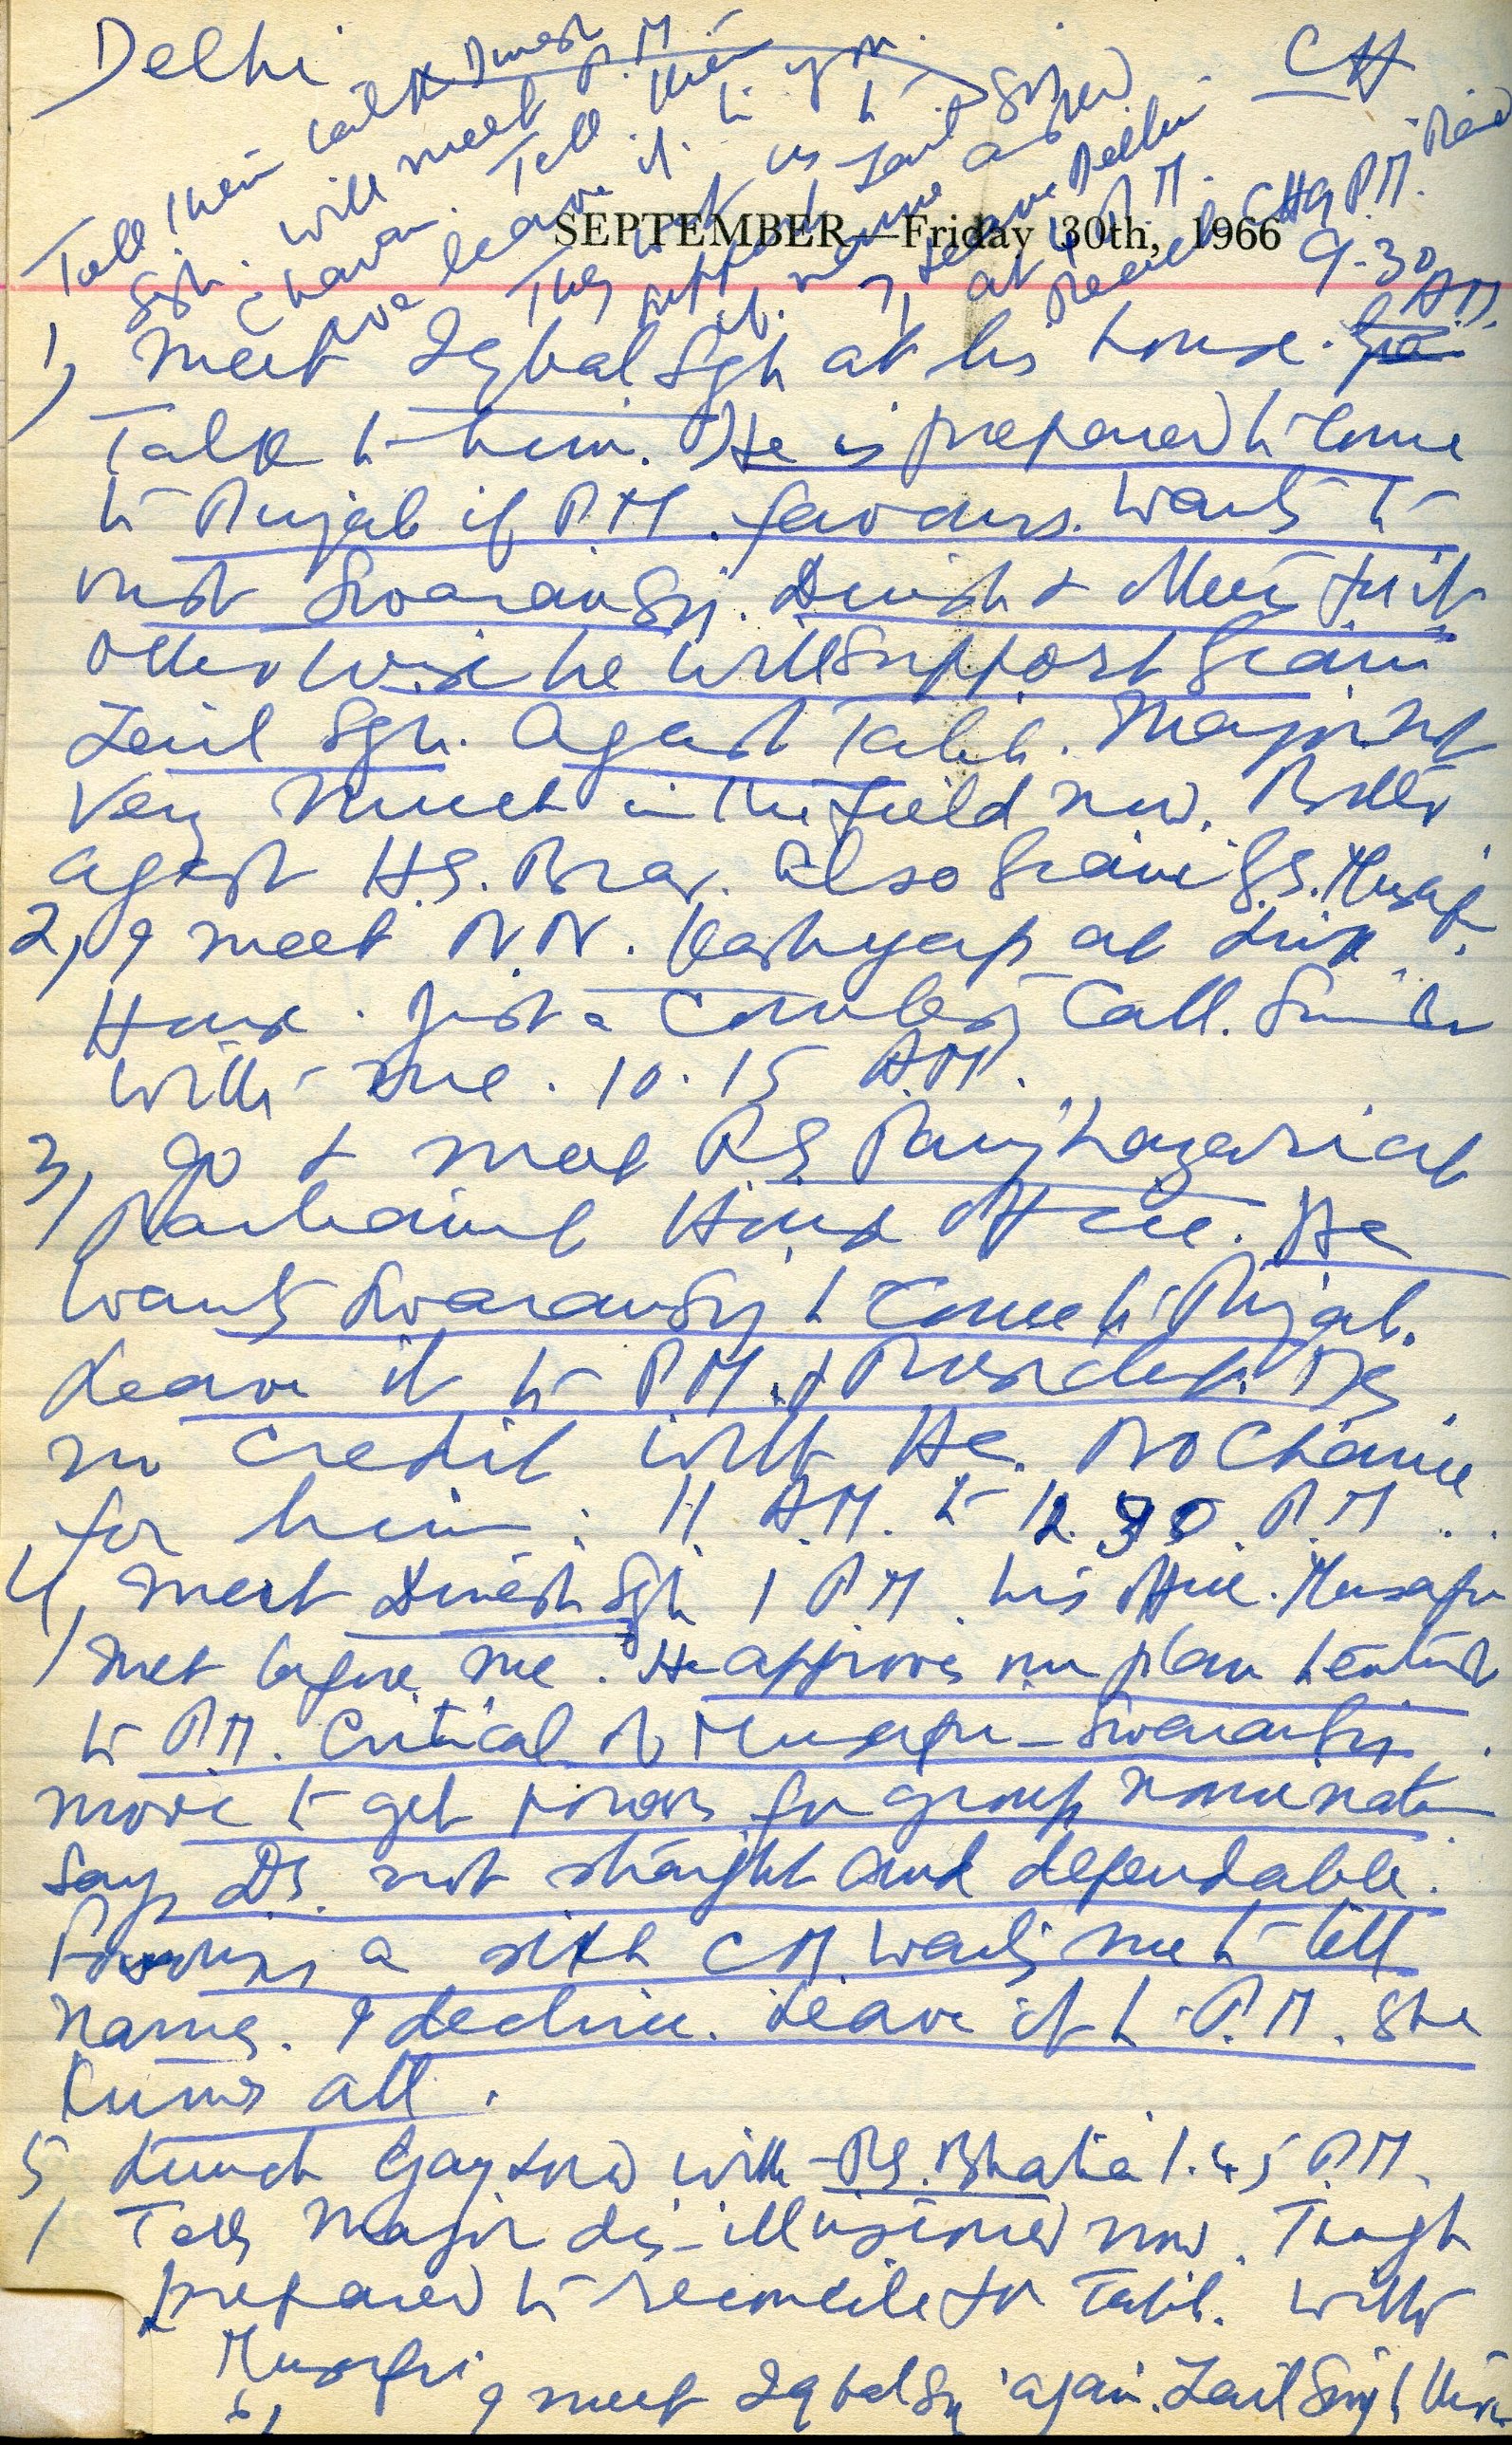 Delhi
CH
Tell them talk Dinesh
Sgh. will meet P.M.
Chavan. Tell them
we leave it to you.
They want us to
support Zail Singh
if name asked
I leave Delhi
at 4 P.M.
Reach CHG P.M.
SEPTEMBER—Friday 30th, 1966
9-30 A.M.
1, Meet Iqbal Sgh at his house.
Talk to him. He is prepared to come
to Punjab if P.M. favours. Wants to
Swaransgh. Dinesh &
otherwise he will support Giani
Zail Sgh. Agast Talib. Major
very much in the field now. Bitter
agast H.S. Brar. Also Giani G.S. Musafir.
2, I meet N.N. Kashyap at Link
House. Just a courtesy call.
with me. 10.15 A.M.
3, Go & meet R.S. Panjhazari at
Parliament House Office. He
wants Swaransgh to come to Punjab.
Leave it to P.M. & President. DS
no credit with HC. No chance
for him. 11 A.M. to 12.30 P.M.
4, Meet Dinesh Sgh 1 P.M. his office. Musafir
met before me. He approves my plan to entrust
to P.M. Critical of Musafir-Swaransgh
move to get powers for group nomination
Says DS. not straight and dependable.
Favours a Sikh CM. Wants me to tell
names. I decline. Leave it to P.M. She
knows all.
5, Lunch Gaylord with P.S. Bhatia 1.45 P.M.
Tells Major dis-illusioned now. Though
prepared to reconcile to Talib. With
Musafir
6, I meet Iqbal Sgh again. Zail Singh